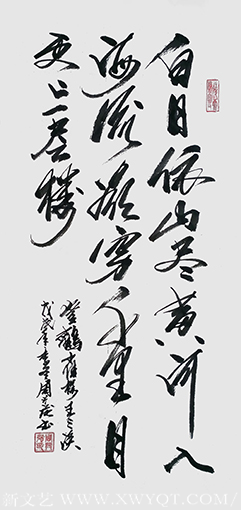 白日依山尽黄河入
海流欲穷千里目
更上一层楼
登鹳雀楼王之涣
戊戌年
新文艺 WWW.XWYQT.COM